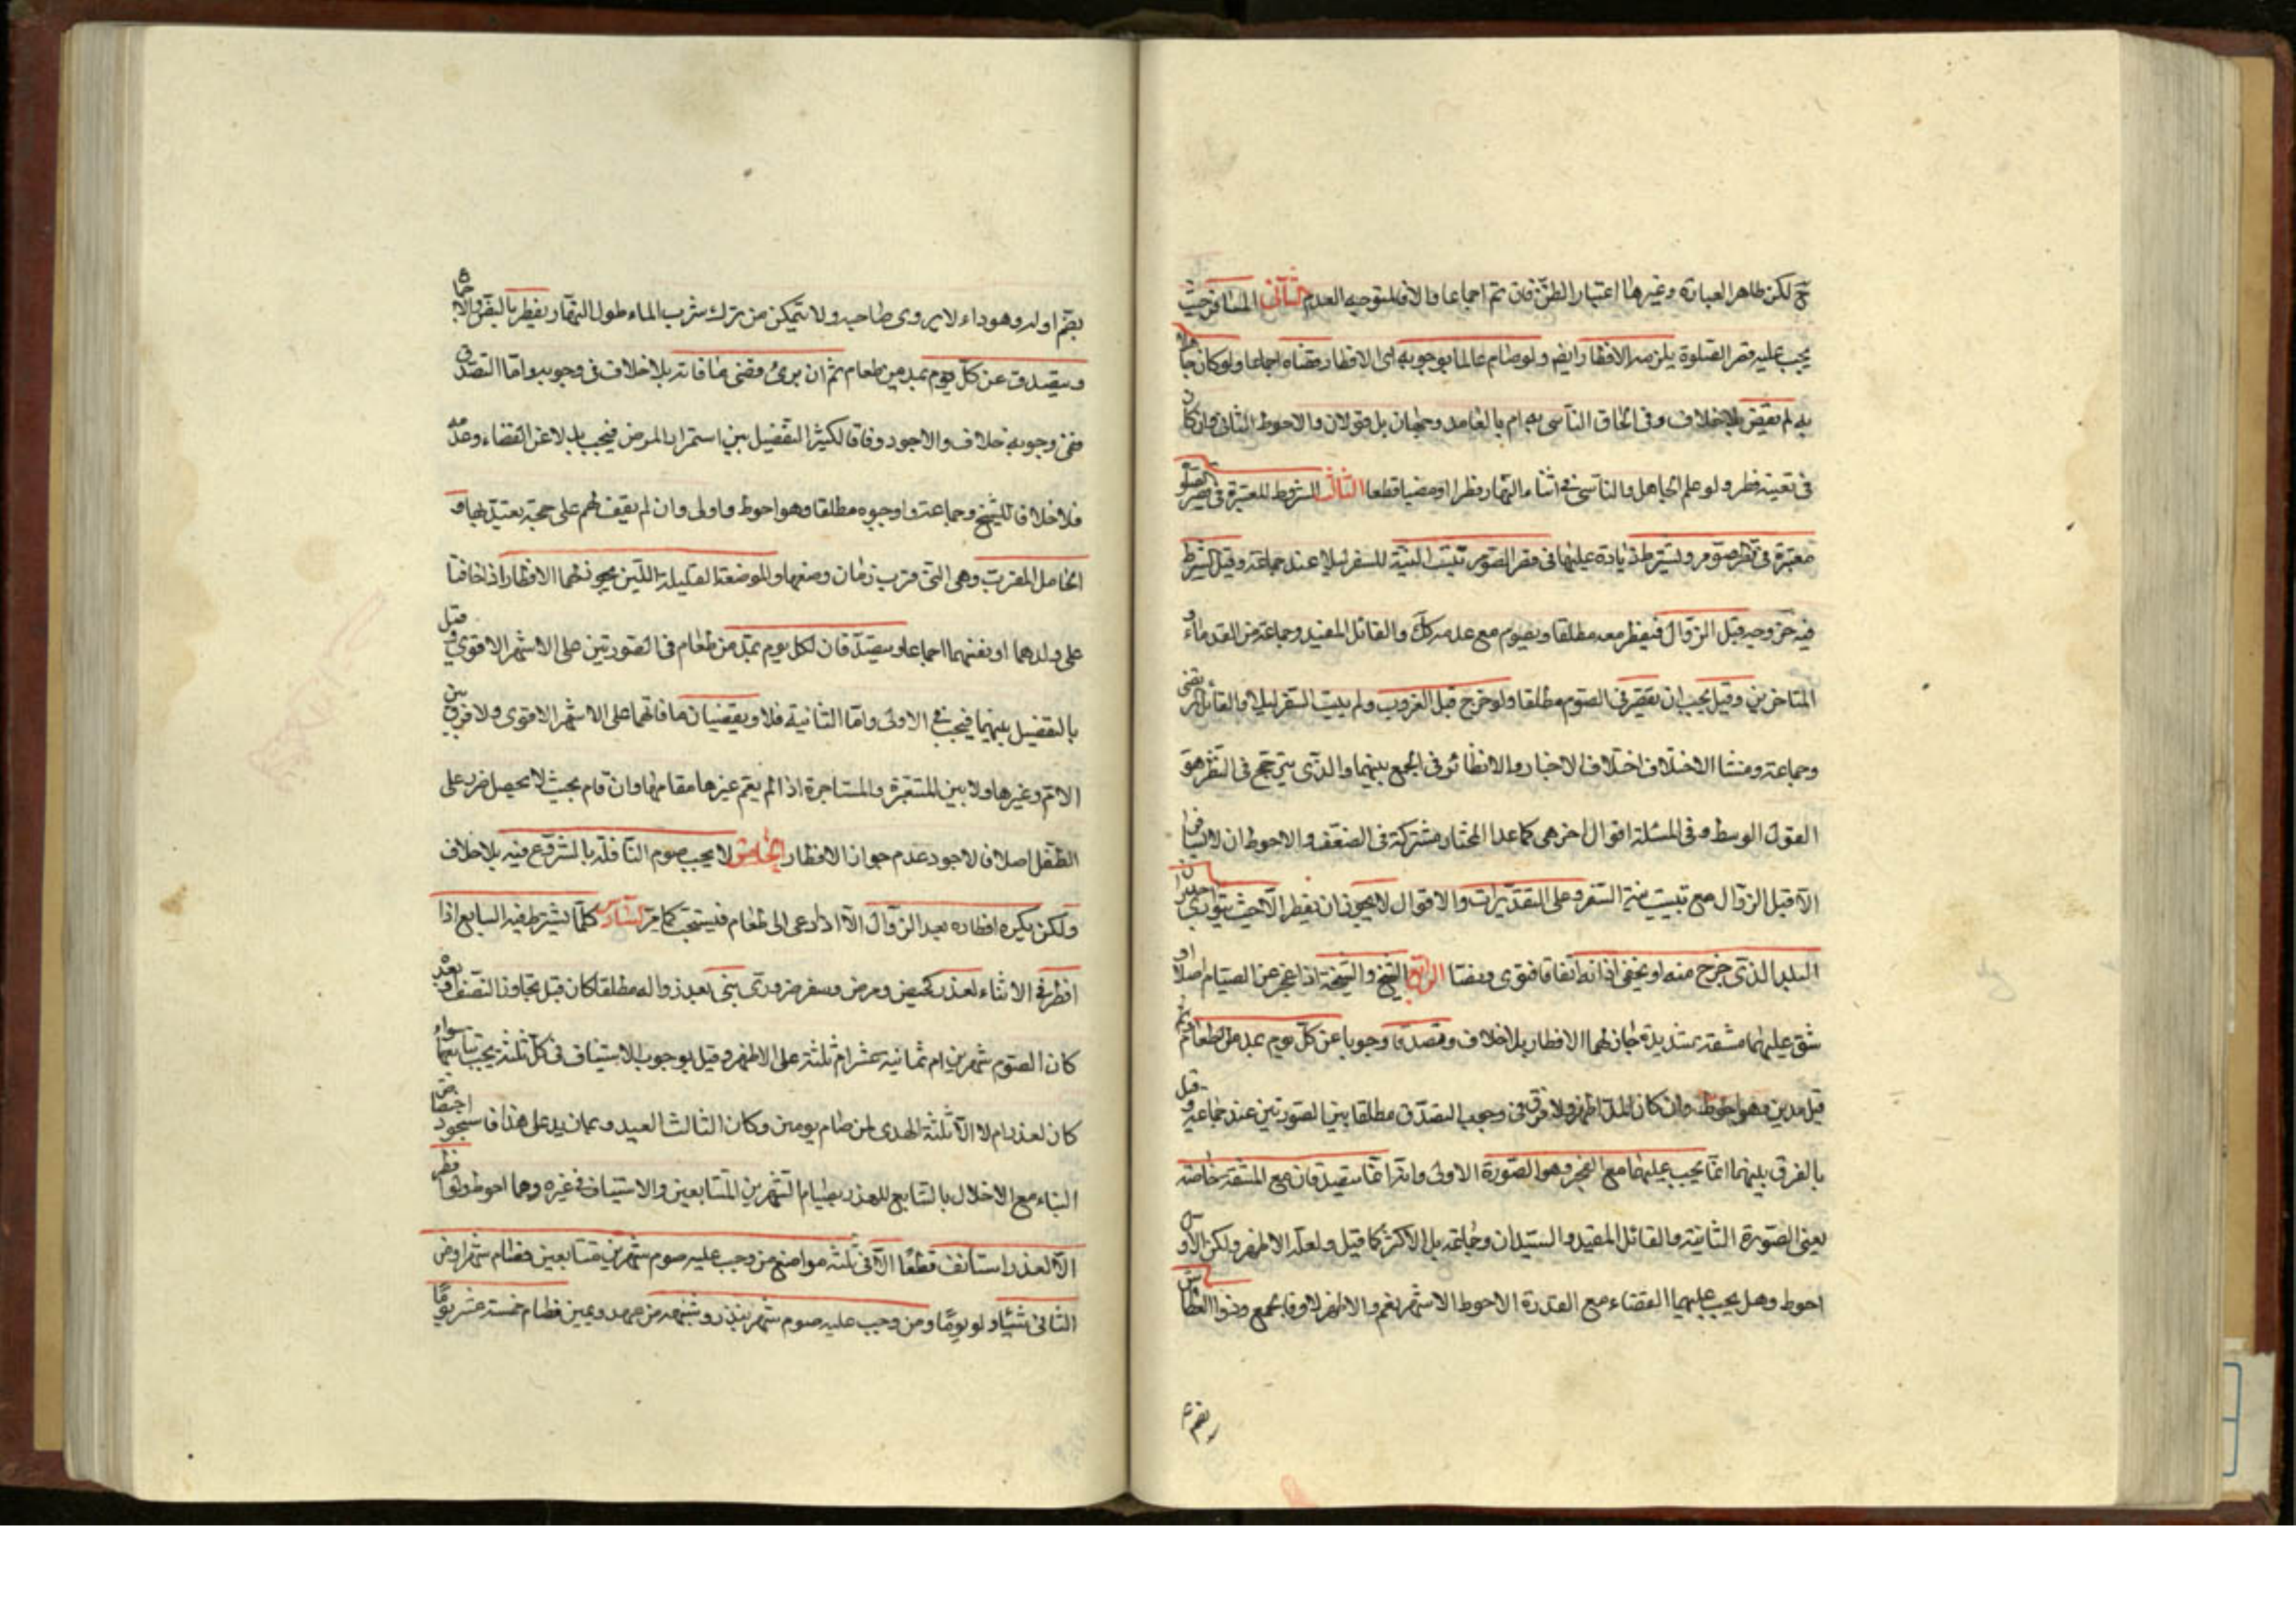 ح لكن ظاهر العبارة وغيرها اعتبار الظن فان تم اجماعا والا فلتوجيه العدم الثاني المسافر حيث
يجب عليه قصر الصلوة يلزمه الافطار ايضم ولو صام عالما بوجوبه اى الافطار قضاه اجماعا ولو كان جاهلا
به لم يقض بلا خلاف وفى الحاق الناسى به ام بالعامد وجهان بل قولان والاحوط الثانى وان كان
فى تعينه نظر ولو علم الجاهل والناسى فى اثناء النهار فطرا ومضيا قطعا الثالث الشروط المعتبرة فى قصر الصلوة
معتبرة فى قصر الصوم ويشترط زيادة عليها فى قصر الصوم تبييت النية للسفر ليلا عند جماعة وقيل الشرط
فيه خروجه قبل الزوال فيفطر معه مطلقا ويصوم مع عدمه كك والقائل المفيد وجماعة من القدماء و
المتاخرين وقيل يجب ان يقصر فى الصوم مطلقا ولو خرج قبل الغروب ولم يبيت السفر ليلا والقائل المرتضى
وجماعة ومنشا الاختلاف اختلاف الاخبار والانظار فى الجمع بينهما والذى يترجح فى النظر هو
القول الوسط وفى المسئلة اقوال اخر هى كما عدا المختار مشتركة فى الضعف والاحوط ان لا يسافر
الا قبل الزوال مع تبييت نية السفر وعلى التقديرات والاقوال لا يجوز ان يفطر الا حيث يتوارى جدران
البلد الذى خرج منه او يخفى اذانه اتفاقا فتوى ونصا الرابع الشيخ والشيخة اذا عجز عن الصيام اصلا او
شق عليهما مشقة شديدة جاز لهما الافطار بلا خلاف وتصدقا وجوبا عن كل يوم بمد من طعام وثم
قيل مدين وهو احوط وان كان المد اظهر ولا فرق فى وجوب التصدق مطلقا بين الصورتين عند جماعة وقيل
بالفرق بينهما انما يجب عليهما مع العجز وهو الصورة الاولى وانما يتصدقان مع المشقة خاصة
يعنى الصورة الثانية والقائل المفيد والسيدان وجماعة بل الاكثر كما قيل ولعله الاظهر ولكن الاول
احوط وهل يجب عليهما القضاء مع القدرة الاحوط الاشهر نعم والاظهر لا وفاقا لجمع وذو العطاش
بضم اوله وهو داء لا يروى صاحبه ولا يتمكن من ترك شرب الماء طول النهار يفطر باليقين والاجماع
ويتصدق عن كل يوم بمد من طعام ثم ان برئ قضى ما فاته بلا خلاف فى وجوبه واما التصدق
ففى وجوبه خلاف والاجود وفاقا لكثير التفصيل بين استمرار المرض فيجب بدلا عن القضاء وعدمه
فلا خلافا للشيخ وجماعة واوجبوه مطلقا وهو احوط واولى وان لم يقف لهم على حجة يعتد بها و
الحامل المقرب وهى التى قرب زمان وضعها والمرضعة القليلة اللبن يجوز لهما الافطار اذا خافتا
على ولدهما او نفسهما اجماعا ويتصدقان لكل يوم بمد من طعام فى الصورتين على الاشهر الاقوى وقيل
بالتفصيل بينهما فيجب فى الاولى واما الثانية فلا ويقضيان ما فاتهما على الاشهر الاقوى ولا فرق بين
الام وغيرها ولا بين المتبرعة والمستاجرة اذا لم يقم غيرها مقامها وان قام بحيث لا يحصل ضرر على
الطفل اصلا فالاجود عدم جواز الافطار الخامس لا يجب صوم النافلة بالشروع فيه بلا خلاف
ولكن يكره افطاره بعد الزوال الا اذا دعى الى طعام فيستحب كما مر السادس كلما يشترط فيه التتابع اذا
افطر فى الاثناء لعذر كحيض ومرض وسفر ضرورى يبنى بعد زواله مطلقا كان قبل تجاوز النصف او بعده
كان الصوم شهرين ام ثمانية عشر ام ثلثة على الاظهر وقيل بوجوب الاستيناف فى كل ثلثة يجب تتابعها سواء
كان لعذر ام لا الا ثلثة الهدى لمن صام يومين وكان الثالث العيد و على هذا فاستجود اختصاص
البناء مع الاخلال بالتتابع للعذر بصيام الشهرين المتتابعين والاستيناف فى غيره وهما احوط ولو افطر
لا لعذر استانف قطعا الا فى ثلثه مواضع من وجب عليه صوم شهرين متتابعين فصام شهرا ومن
الثانى شيئا ولو يوما ومن وجب عليه صوم شهر بنذر وشبهه من عهد ويمين فصام خمسة عشر يوما